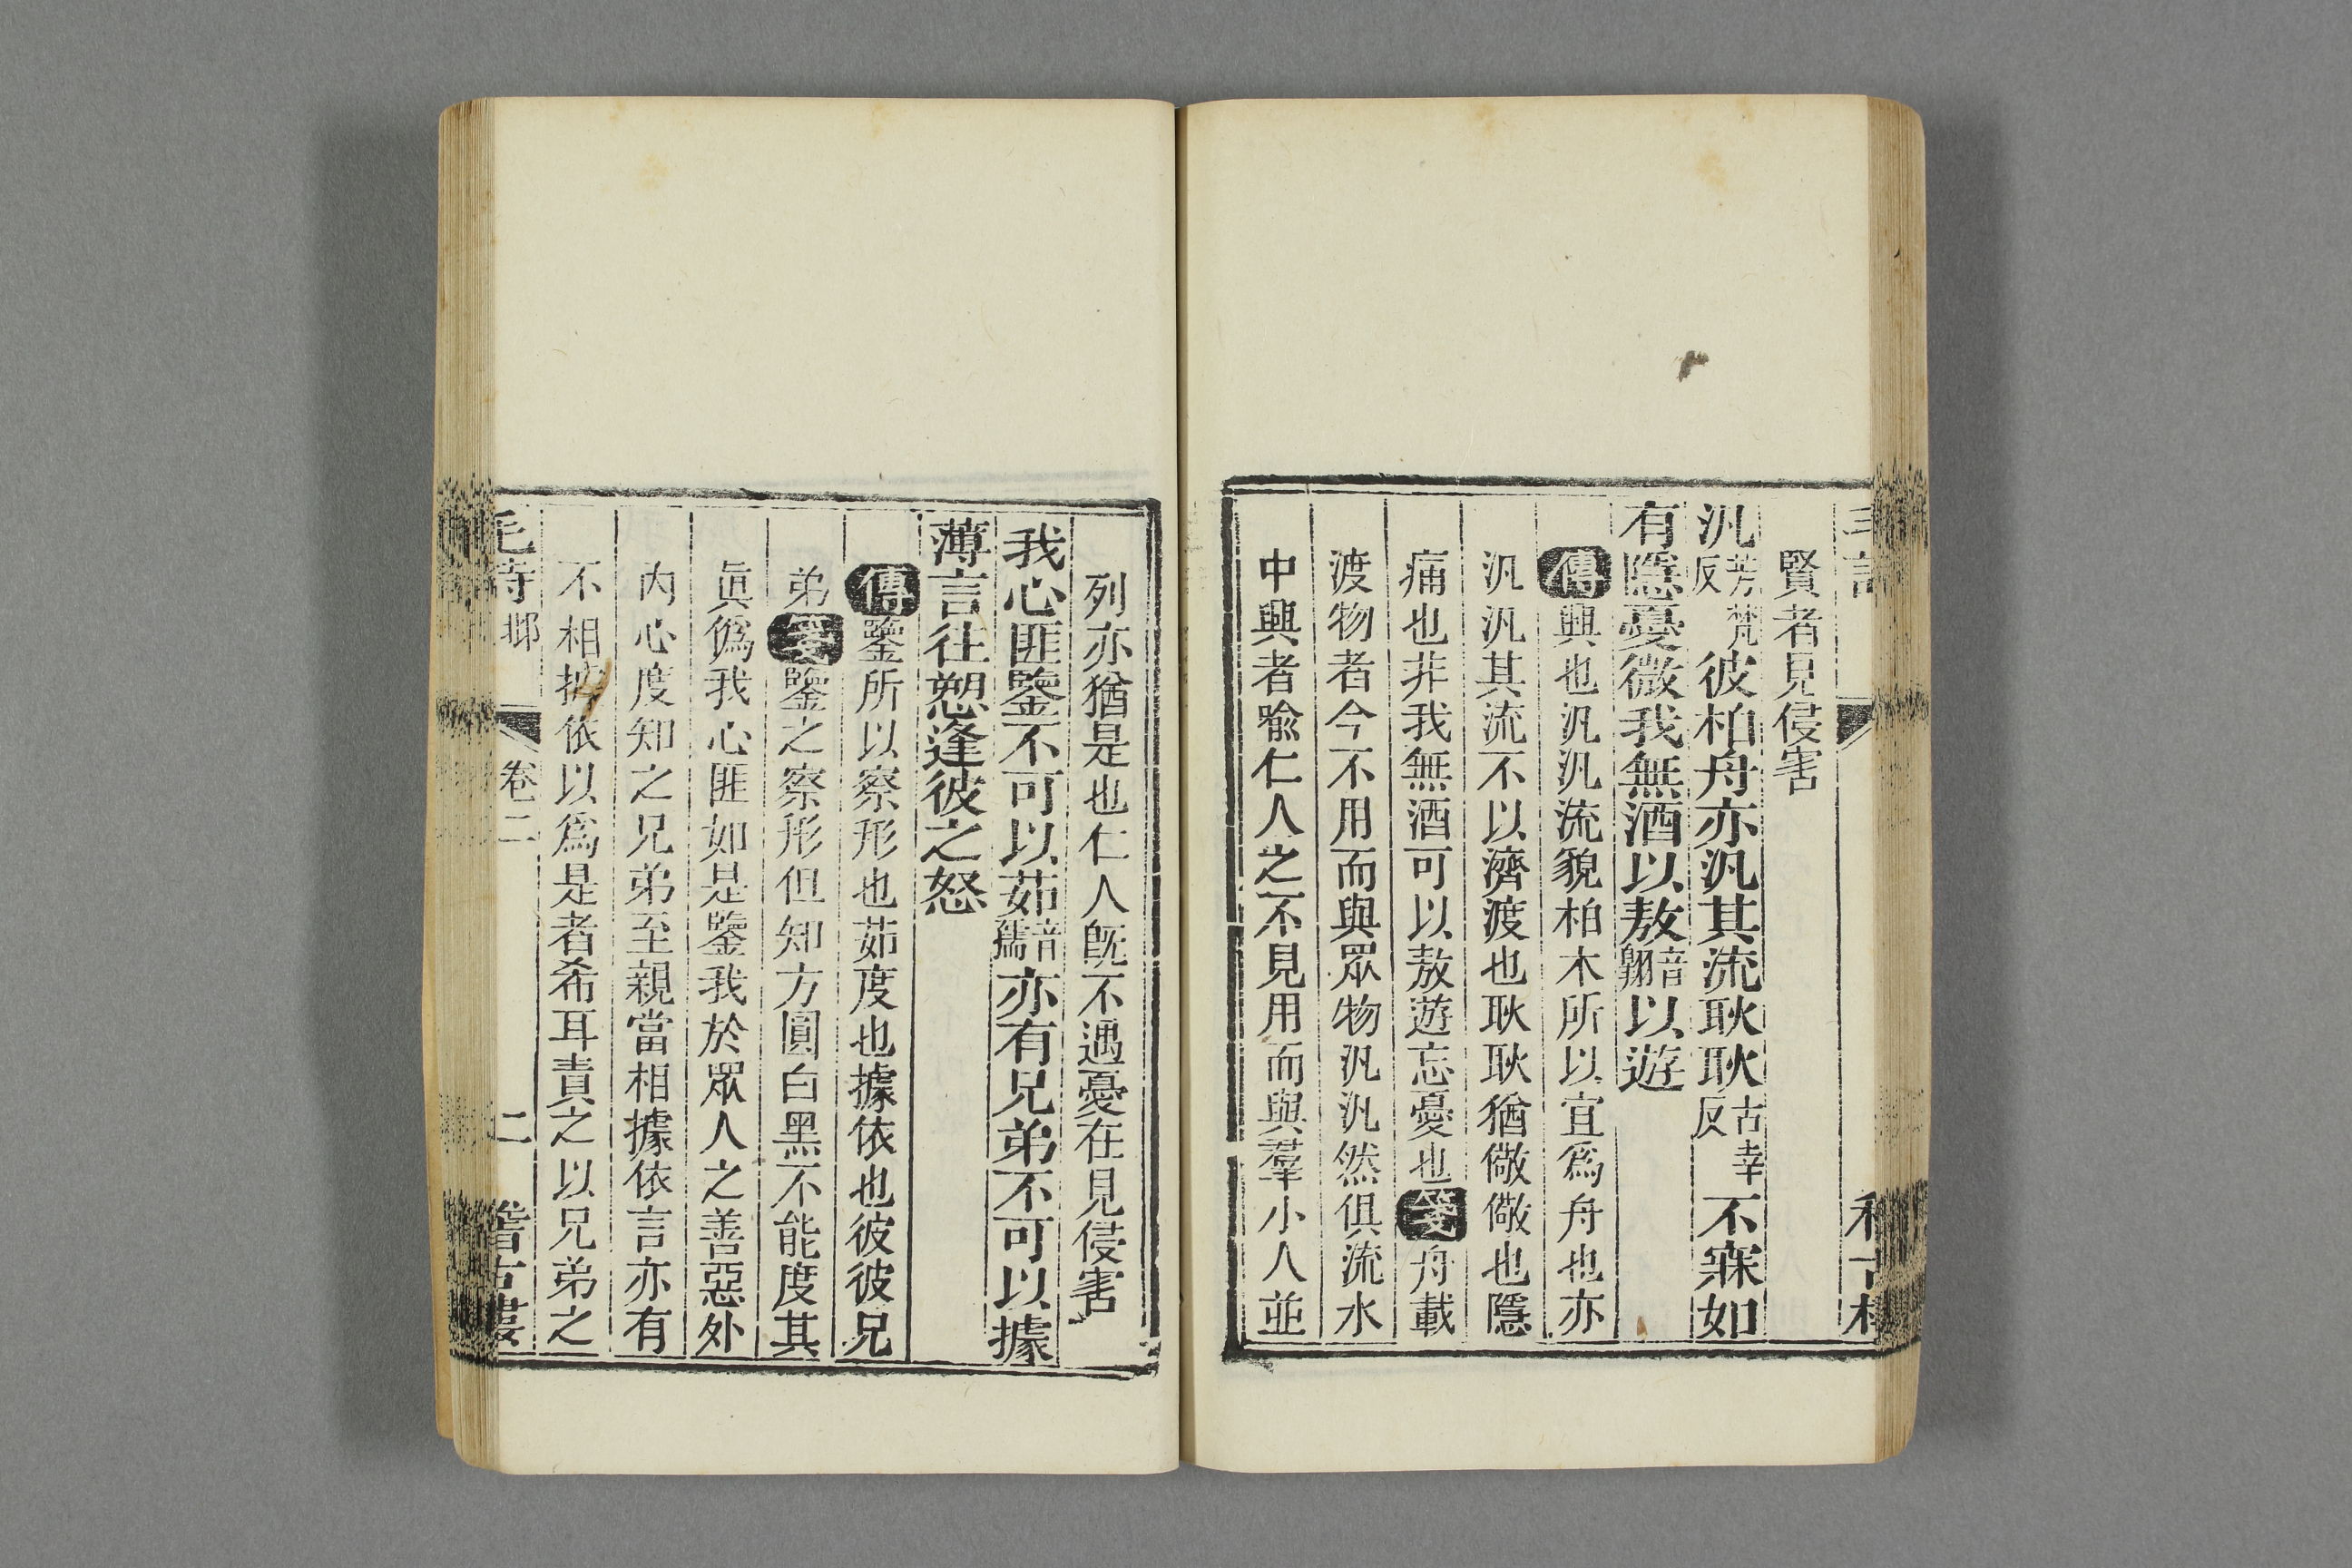 賢者見侵害
汎芳梵反彼柏舟亦汎其流耿耿古幸反不寐如
有隱憂微我無酒以敖音翺以遊
傳興也汎汎流貌柏木所以宜爲舟也亦
汎汎其流不以濟渡也耿耿猶儆儆也隱
痛也非我無酒可以敖遊忘憂也箋舟載
渡物者今不用而與眾物汎汎然俱流水
中興者喻仁人之不見用而與羣小人並
列亦猶是也仁人既不遇憂在見侵害
我心匪鑒不可以茹音孺亦有兄弟不可以據
薄言往愬逢彼之怒
傳鑒所以察形也茹度也據依也彼彼兄
弟箋鑒之察形但知方圓白黑不能度其
眞僞我心匪如是鑒我於眾人之善惡外
内心度知之兄弟至親當相據依言亦有
不相據依以爲是者希耳責之以兄弟之
毛詩邶 卷二 二 稽古樓